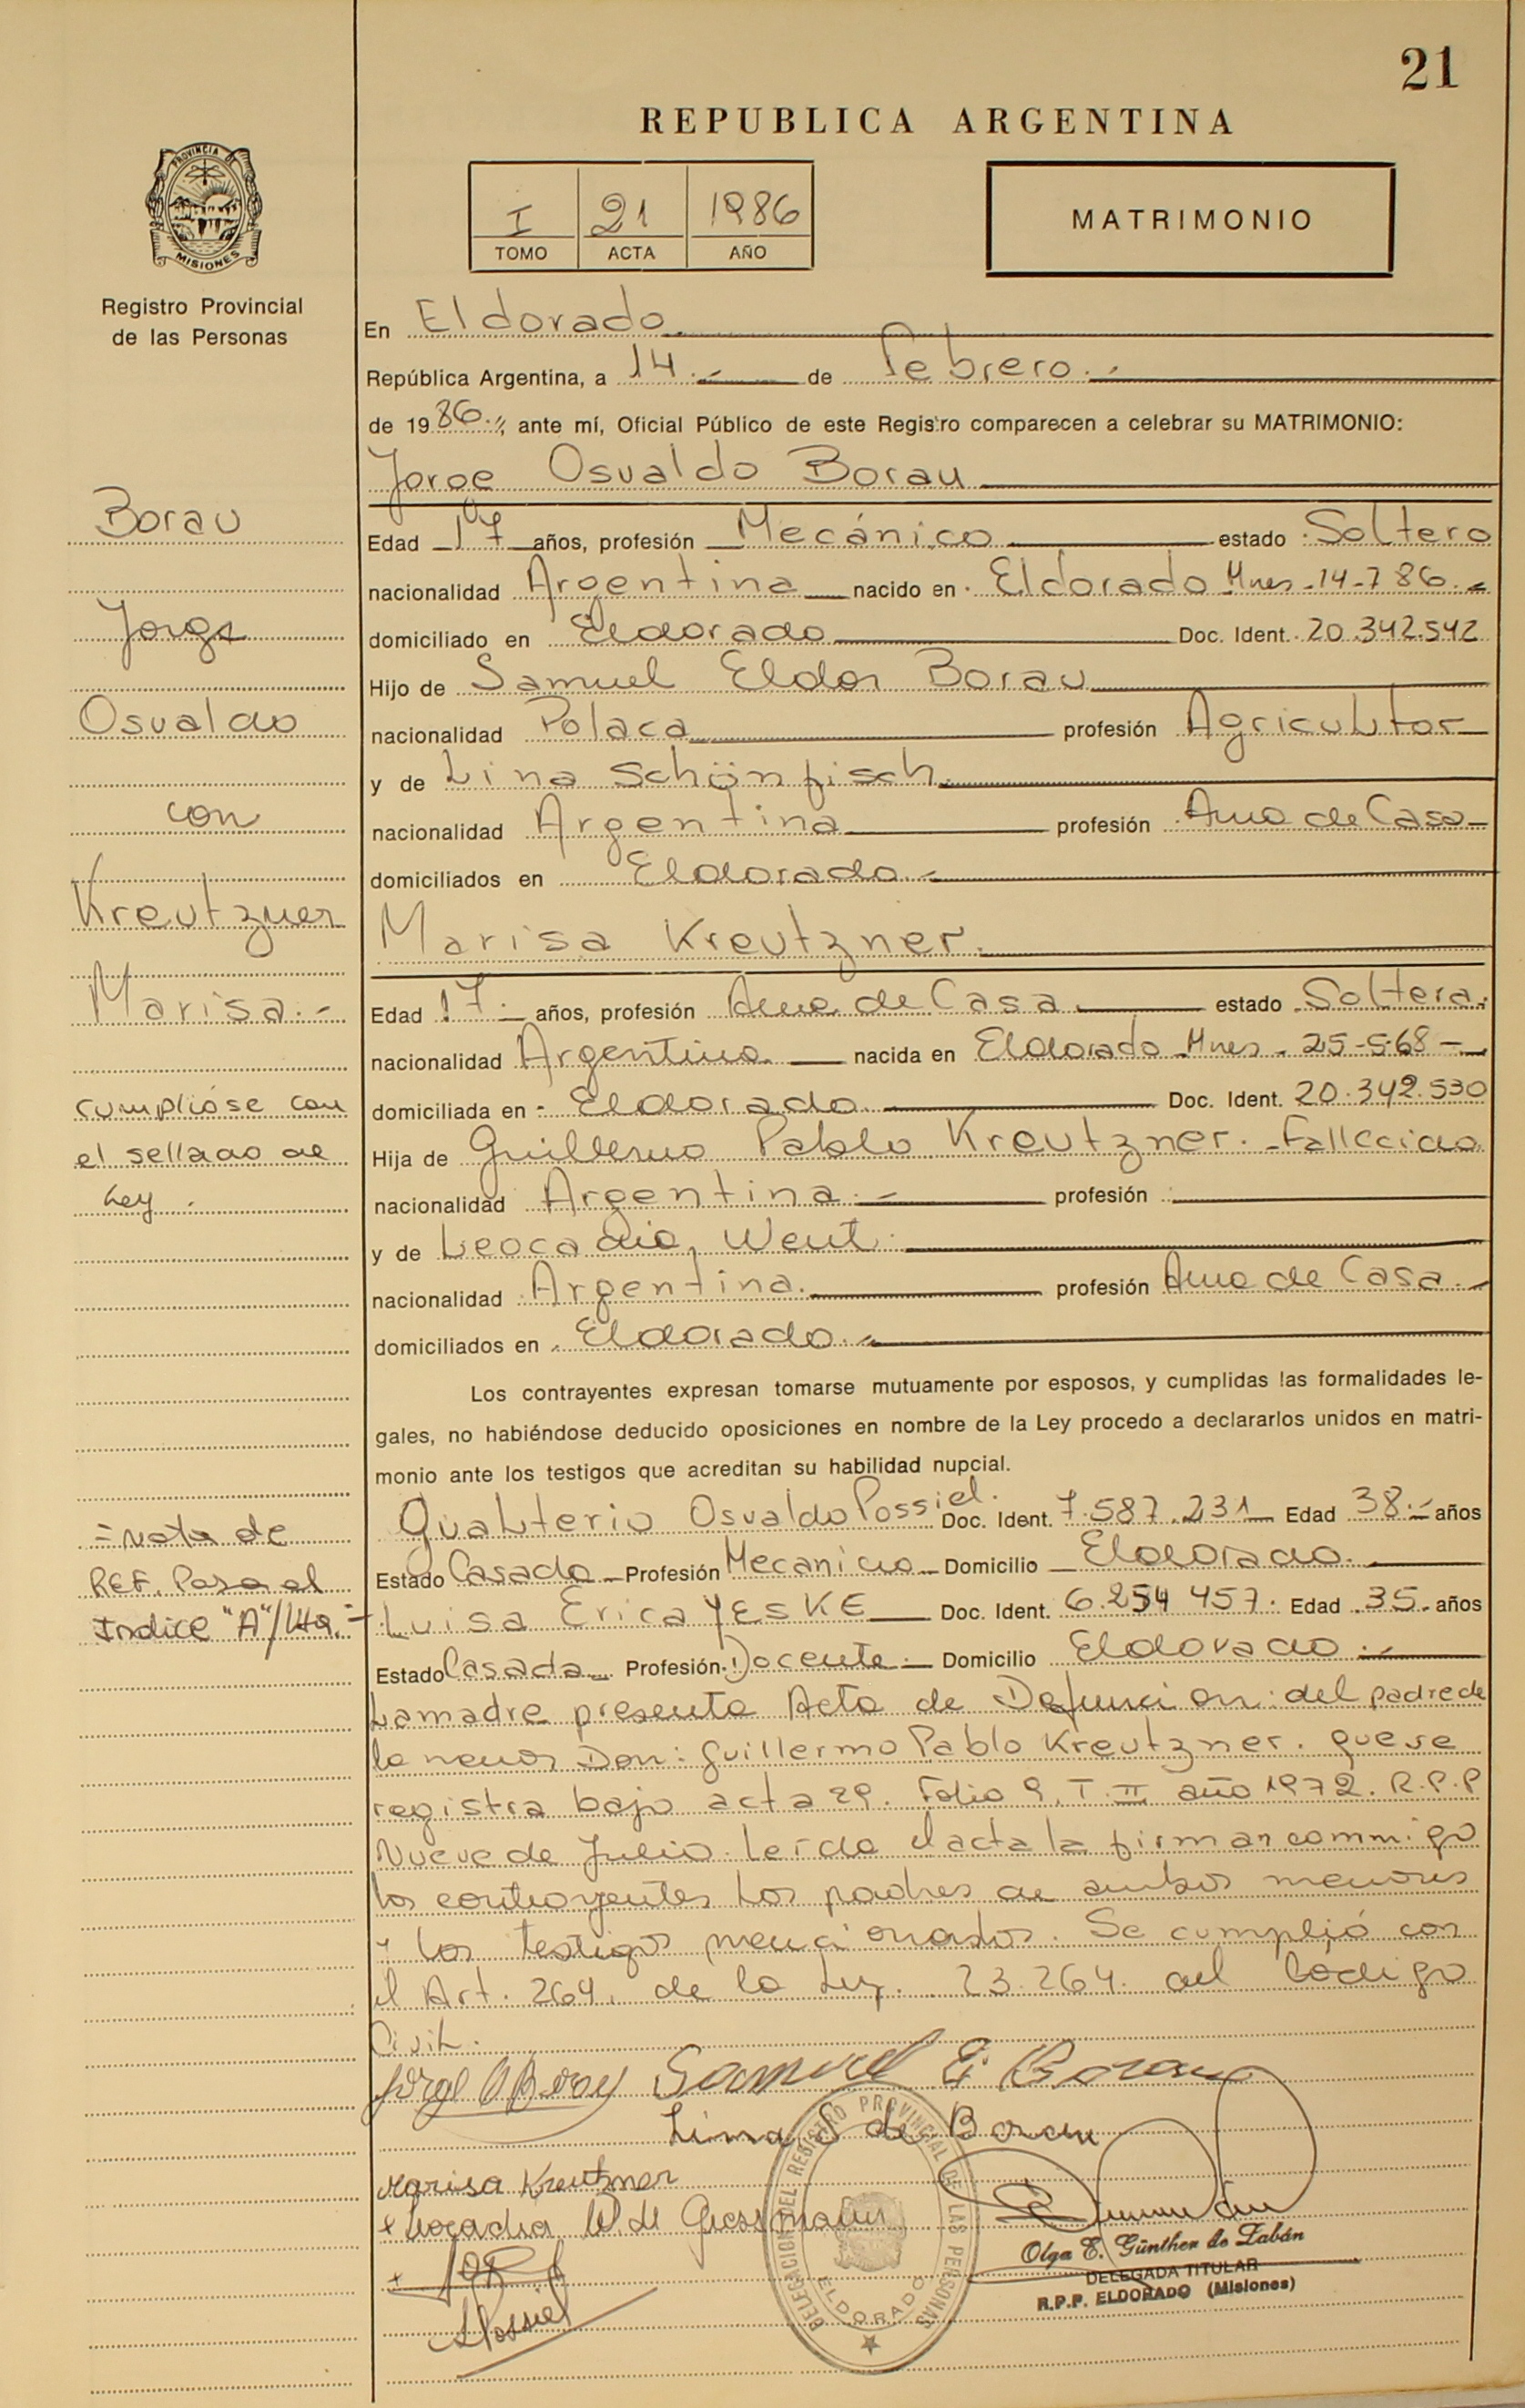 21
REPUBLICA ARGENTINA
I 21 1986
TOMO ACTA AÑO
MATRIMONIO
PROVINCIA DE
MISIONES
Registro Provincial
de las Personas
En Eldorado.
República Argentina, a 14.- de Febrero.-
de 1986.-, ante mí, Oficial Público de este Registro comparecen a celebrar su MATRIMONIO:
Jorge Osvaldo Borau
Edad 17 años, profesión Mecánico estado Soltero
nacionalidad Argentina nacido en Eldorado Mnes-14-7 86.-
domiciliado en Eldorado Doc. Ident. 20.342.542
Hijo de Samuel Eldor Borau
nacionalidad Polaca profesión Agricultor
y de Lina Schönfisch.
nacionalidad Argentina profesión Ama de Casa
domiciliados en Eldorado.-
Marisa Kreutzner.
Edad 17.- años, profesión Ama de Casa estado Soltera.
nacionalidad Argentina nacida en Eldorado Mnes - 25-5-68-
domiciliada en Eldorado. Doc. Ident. 20.342.530
Hija de Guillermo Pablo Kreutzner. -Fallecido
nacionalidad Argentina.- profesión
y de Leocadia Went.
nacionalidad Argentina. profesión Ama de Casa.-
domiciliados en Eldorado.-
Los contrayentes expresan tomarse mutuamente por esposos, y cumplidas las formalidades le-
gales, no habiéndose deducido oposiciones en nombre de la Ley procedo a declararlos unidos en matri-
monio ante los testigos que acreditan su habilidad nupcial.
Gualterio Osvaldo Possiel. Doc. Ident. 7.587.231 Edad 38.- años
Estado Casado Profesión Mecanico Domicilio Eldorado.
Luisa Erica YESKE Doc. Ident. 6.254 457. Edad 35.- años
Estado Casada Profesión Docente.- Domicilio Eldorado.-
La madre presenta Acta de Defuncion: del padre de
la menor Don: Guillermo Pablo Kreutzner. que se
registra bajo acta 29. Folio 9. T. II año 1972. R.P.P
Nueve de Julio. Leida el acta la firman conmigo
los contrayentes los padres de ambos menores
y los testigos mencionados. Se cumplió con
el Art. 264. de la Ley. 23.264. del Codigo
Civil.
Borau
Jorge
Osvaldo
con
Kreutzner
Marisa.-
cumplióse con
el sellado de
Ley.
=Nota de
REF. Para el
Indice "A"/Lta.
Jorge O Borau Samuel E. Borau
Lina S de Borau
Marisa Kreutzner
Leocadia W. de Grossmann
Possiel
DELEGACION DEL REGISTRO PROVINCIAL DE LAS PERSONAS
ELDORADO
Olga E. Günther de Zabán
DELEGADA TITULAR
R.P.P. ELDORADO (Misiones)